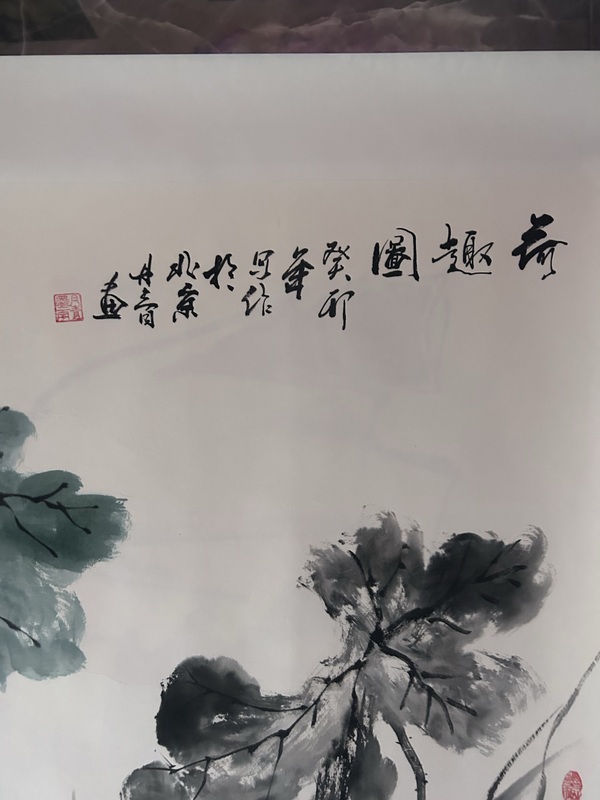 荷
趣
圖
癸卯
年
写作
於
北京
丹青
画